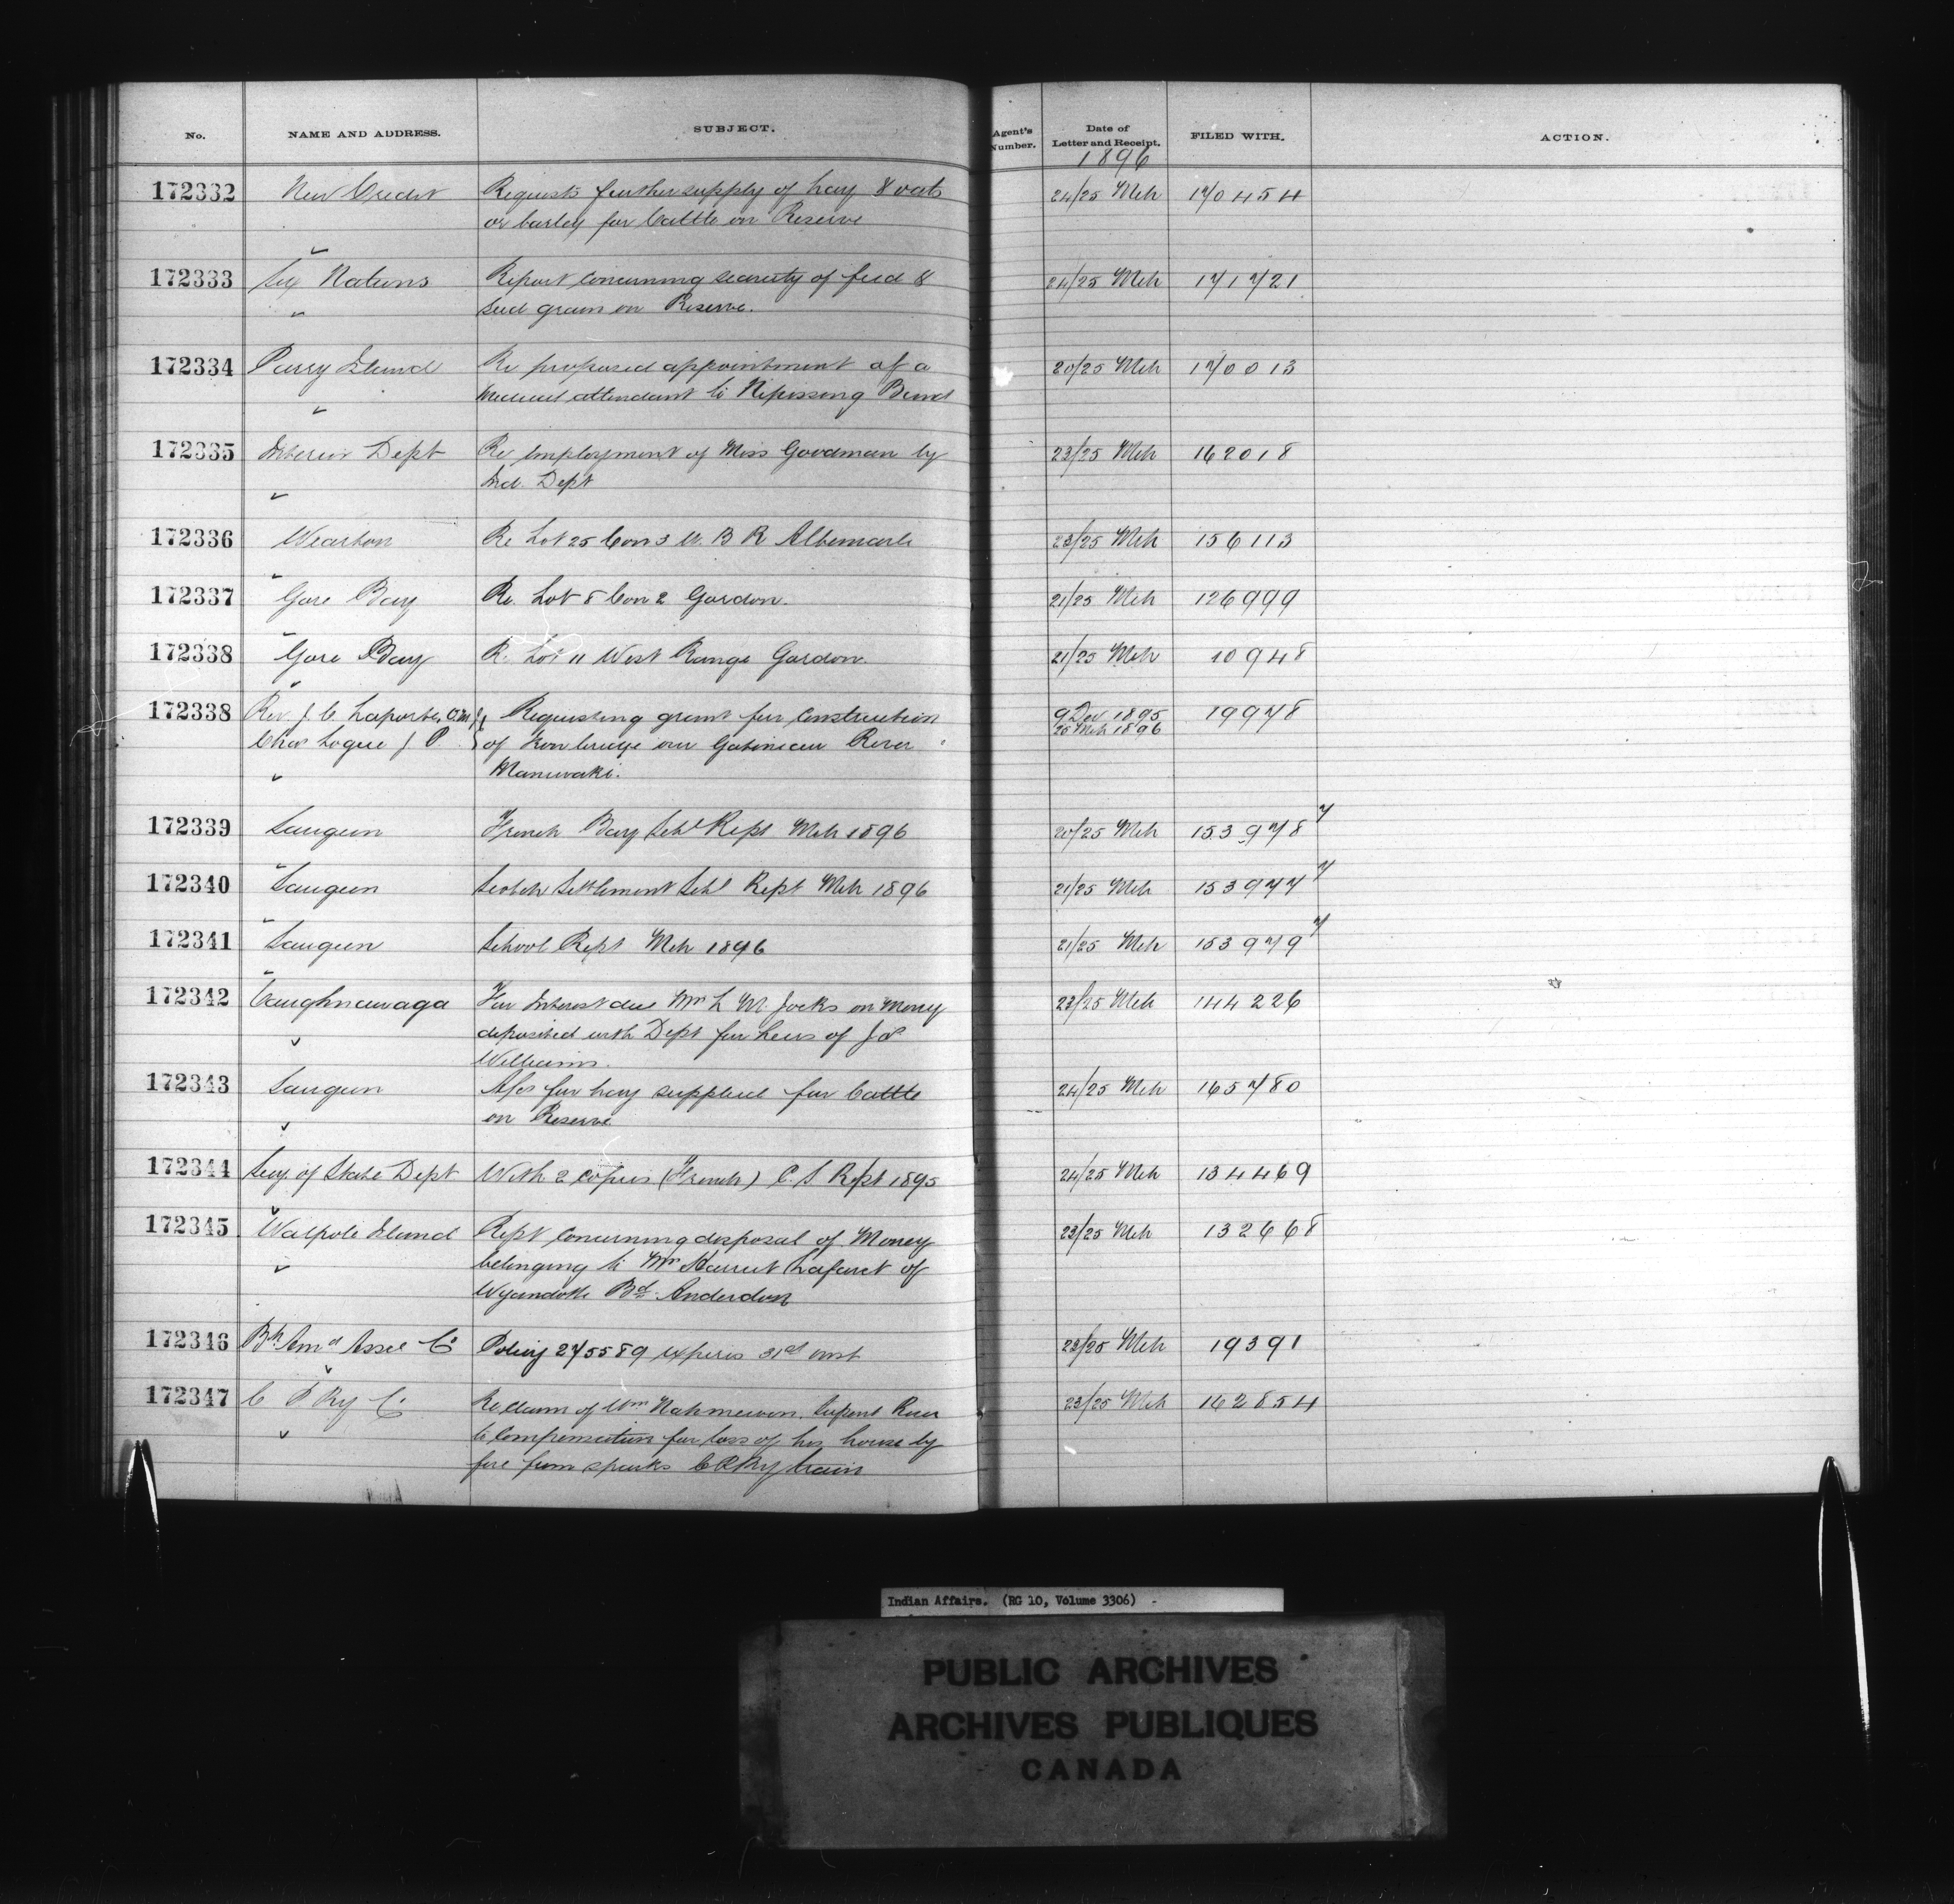 No. NAME AND ADDRESS. SUBJECT. Agent's Number. Date of Letter and Receipt. FILED WITH. ACTION.
1896
172332 New Credit Requests further supply of hay & oats 24/25 Mch 170454
or barley for Cattle on Reserve
172333 Six Nations Report concerning scarcity of feed & 24/25 Mch 171721
seed grain on Reserve.
172334 Parry Island Re proposed appointment of a 20/25 Mch 170013
Medical attendant to Nipissing Band
172335 Interior Dept Re employment of Miss Goodman by 23/25 Mch 162018
Ind. Dept
172336 Wiarton Re Lot 25 Con 3 W. B R Albemarle 23/25 Mch 156113
172337 Gore Bay Re. Lot 8 Con 2 Gordon. 21/25 Mch 126999
172338 Gore Bay Re Lot 11 West Range Gordon. 21/25 Mch 10948
172338 Rev. J. C. Laporte, O.M.I. Requesting grant for Construction 9 Dec 1895 19978
Chas Logue J P. of Iron bridge over Gatineau River 25 Mch 1896
Maniwaki.
172339 Saugeen French Bay Schl Rept Mch 1896 20/25 Mch 153978 7
172340 Saugeen Scotch Settlement Schl Rept Mch 1896 21/25 Mch 153977 7
172341 Saugeen School Rept Mch 1896 21/25 Mch 153979 7
172342 Caughnawaga For Interest due Mrs L M. Jocks on Money 23/25 Mch 144226
deposited with Dept for heirs of Jos
Williams.
172343 Saugeen A/cs for hay supplied for Cattle 24/25 Mch 165780
on Reserve
172344 Secy. of State Dept With 2 copies (French) C. S Rept 1895 24/25 Mch 134469
172345 Walpole Island Rept concerning disposal of Money 23/25 Mch 132668
belonging to Mrs Harriet Lafaret of
Wyandotte Bd. Anderdon
172346 Bh Amn Assce Co Policy 275589 expires 31st inst 23/25 Mch 19391
172347 C P Ry Co Re claim of Wm Nahmewon, Serpent River 23/25 Mch 162854
to Compensation for loss of his house by
fire from sparks C P Ry train
Indian Affairs. (RG 10, Volume 3306) -
PUBLIC ARCHIVES
ARCHIVES PUBLIQUES
CANADA